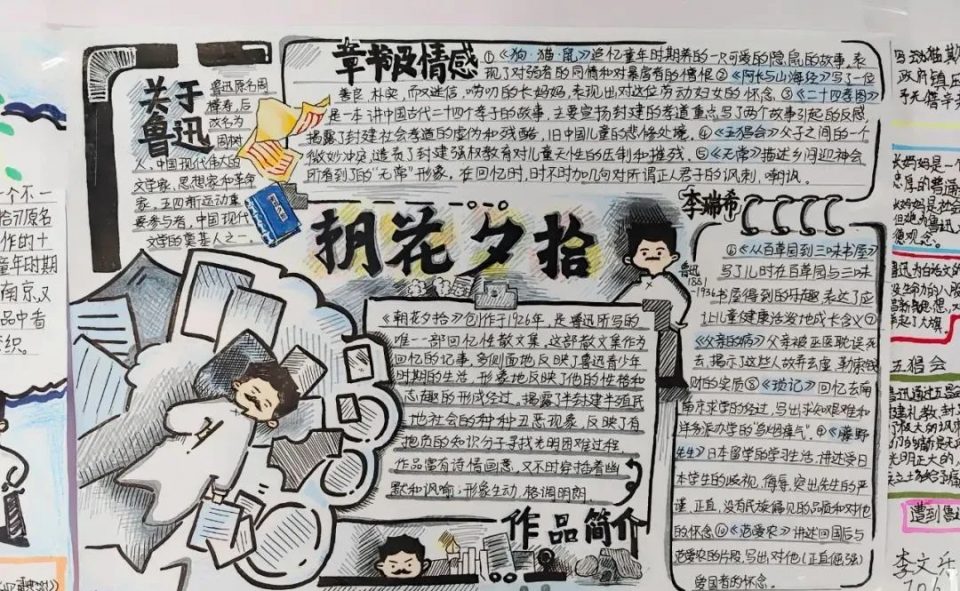 关于
鲁迅
鲁迅原名周
樟寿，后
改名为
周树
人，中国现代伟大的
文学家、思想家和革命
家，五四新运动重
要参与者，中国现代
文学的奠基人之一。
章节及情感
①《狗·猫·鼠》追忆童年时期养的一只可爱的隐鼠的故事，表
现了对弱者的同情和对暴虐者的憎恨②《阿长与山海经》写了一位
善良、朴实，而又迷信、唠叨的长妈妈，表现出对这位劳动妇女的怀念③《二十四孝图》
是一本讲中国古代二十四个孝子的故事，主要宣扬封建的孝道重点写了两个故事引起的反感
揭露了封建社会孝道的虚伪和残酷，旧中国儿童的悲惨处境。④《五猖会》父子之间的一个
微妙冲突，谴责了封建强权教育对儿童天性的压制和摧残。⑤《无常》描述乡间迎神会
所看到了的“无常”形象，在回忆时，时不时加几句对所谓正人君子的讽刺，嘲讽。
李瑞希
朝花夕拾
鲁迅
1881
1936
⑥《从百草园到三味书屋》
写了儿时在百草园与三味
书屋得到的乐趣，表达了应
让儿童健康活泼地成长含义⑦
《父亲的病》父亲被巫医耽误死
去，揭示了这些人故弄玄虚，勒索钱
财的实质⑧《琐记》回忆去南
南京求学的经过，写出求知艰难和
洋务派办学的“乌烟瘴气”⑨《藤野
先生》日本留学的学习生活，讲述受日
本学生的歧视、侮辱，突出先生的严
谨、正直，没有民族偏见的品质和对他
的怀念⑩《范爱农》讲述回国后与
范爱农的片段，写出对他（正直倔强）
爱国者的怀念。
《朝花夕拾》创作于1926年，是鲁迅所写的
唯一一部回忆性散文集，这部散文集作为
回忆的记事，多侧面地反映了鲁迅青少年
时期的生活，形象地反映了他的性格和
志趣的形成经过，揭露了半封建半殖民
地社会的种种丑恶现象，反映了有
抱负的知识分子寻找光明困难过程，
作品富有诗情画意，又不时穿插着幽
默和讽喻；形象生动，格调明朗。
作品简介
个不一
拾》原名
作的十
童年时期
南京，又
品中者
织。
长妈妈是一个
五猖会
遭到鲁迅
李文乐